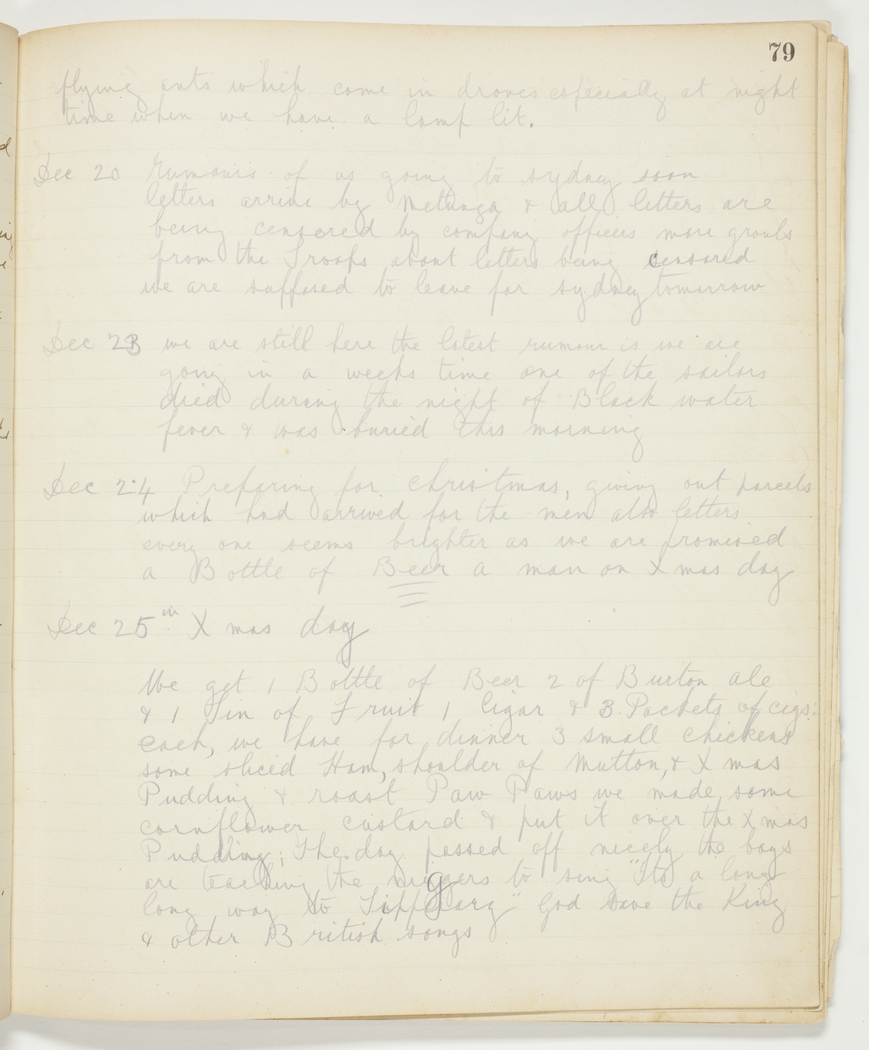 79
flying ants which come in droves especially at night
time when we have a lamp lit.
Dec 20 Rumours of us going to sydney soon
letters arrive by Matunga & all letters are
being censored by company officers more growls
from the Troops about letters being censored
we are supposed to leave for sydney tomorrow
Dec 23 we are still here the latest rumour is we are
going in a weeks time one of the sailors
died during the night of Black water
fever & was buried this morning
Dec 24 Preparing for christmas, giving out parcels
which had arrived for the men also letters
every one seems brighter as we are promised
a Bottle of Beer a man on X mas day
Dec 25th X mas day
We get 1 Bottle of Beer 2 of Burton ale
& 1 Tin of Fruit 1 Cigar & 3 Packets of cigs:
each, we have for dinner 3 small chickens
some sliced Ham, shoulder of Mutton, & X mas
Pudding & roast Paw Paws we made some
cornflower custard & put it over the X mas
Pudding; The day passed off nicely the boys
are teaching the niggers to sing "Its a long
long way to Tipperary" God save the King
& other British songs